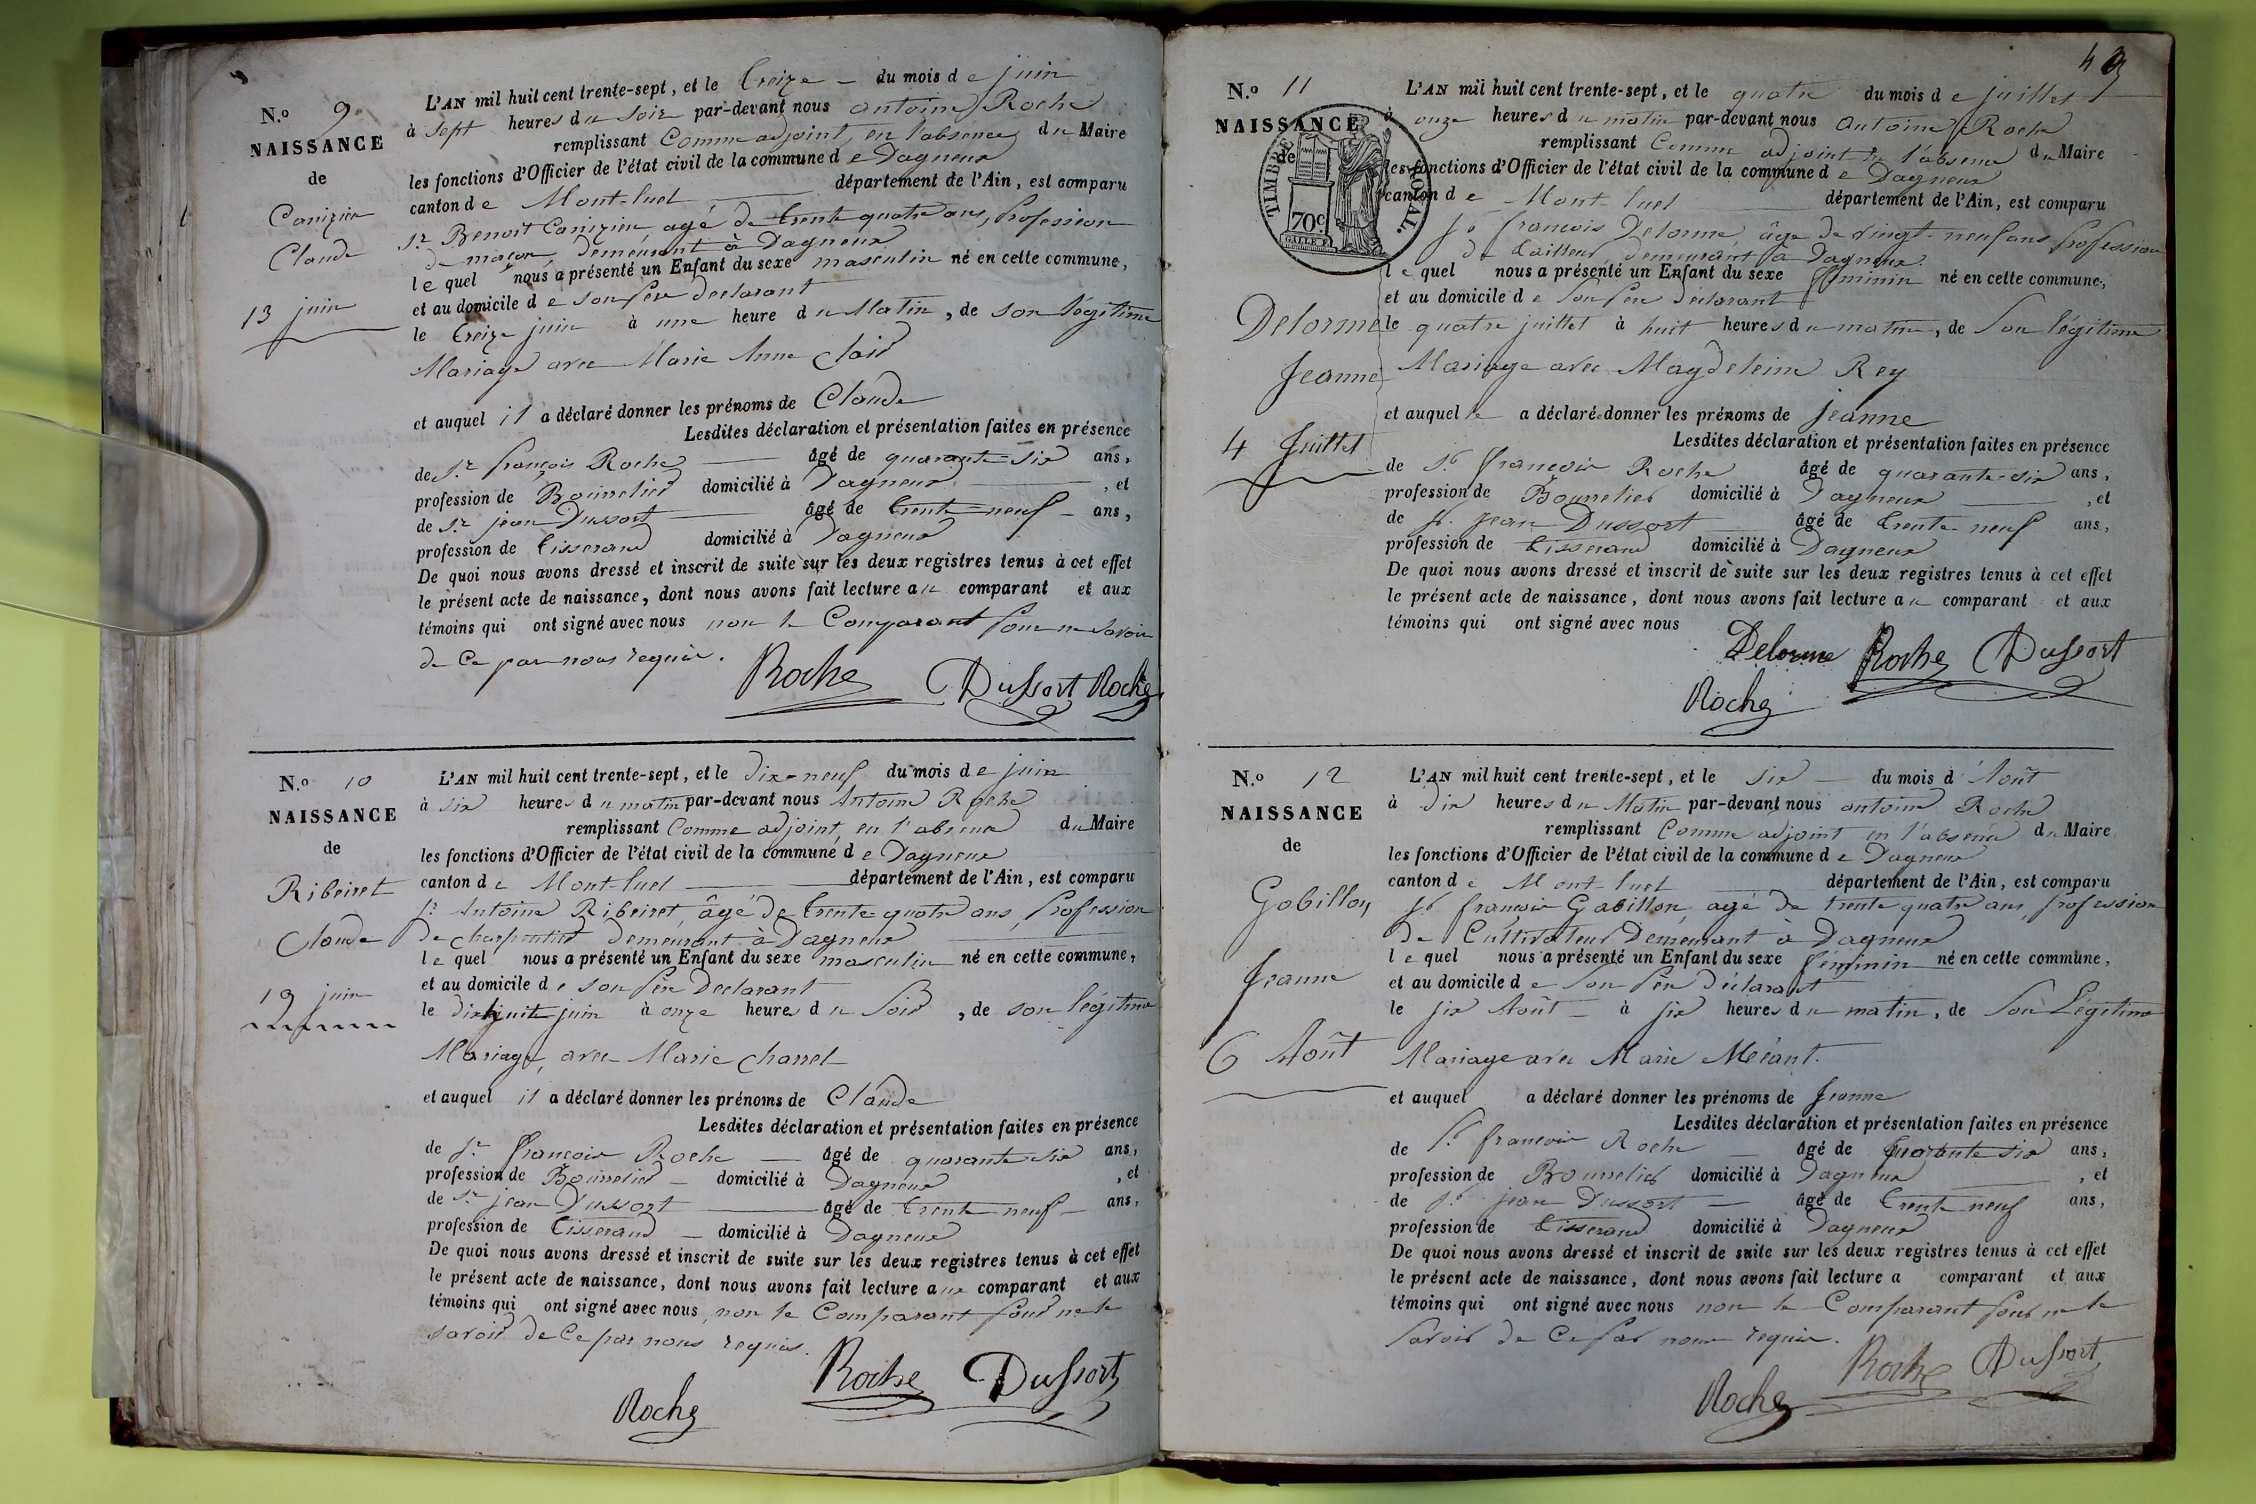 N.o 9
NAISSANCE
de
Canizien
Claude
13 juin
L'AN mil huit cent trente-sept, et le treize - du mois de juin
à sept heures du soir par-devant nous antoine Roche
remplissant Comme adjoint, en l'absence du Maire
les fonctions d'Officier de l'état civil de la commune de Dagneux
canton de Mont-luel département de l'Ain, est comparu
Sr Benoit Canizien, agé de trente quatre ans, profession
de maçon, demeurant à Dagneux
lequel nous a présenté un Enfant du sexe masculin né en cette commune,
et au domicile de son père declarant
le treize juin à une heure du Matin, de son légitime
Mariage avec Marie Anne
et auquel il a déclaré donner les prénoms de Claude
Lesdites déclaration et présentation faites en présence
de Sr françois Roche âgé de quarante-six ans,
profession de Bourrelier domicilié à Dagneux, et
de Sr jean Dussort âgé de trente-neuf - ans,
profession de tisserand domicilié à Dagneux
De quoi nous avons dressé et inscrit de suite sur les deux registres tenus à cet effet
le présent acte de naissance, dont nous avons fait lecture au comparant et aux
témoins qui ont signé avec nous non le Comparant pour ne savoir
de ce par nous requis.
Roche Dussort Roche
N.o 10
NAISSANCE
de
Ribeiret
Claude
19 juin
L'AN mil huit cent trente-sept, et le dix-neuf du mois de juin
à six heures du matin par-devant nous Antoine Roche
remplissant Comme adjoint, en l'absence du Maire
les fonctions d'Officier de l'état civil de la commune de Dagneux
canton de Mont-luel département de l'Ain, est comparu
Sr Antoine Ribeiret, âgé de trente-quatre ans, profession
de charpentier demeurant à Dagneux
lequel nous a présenté un Enfant du sexe masculin né en cette commune,
et au domicile de son père Declarant
le dix huit juin à onze heures du Soir, de son légitime
Mariage, avec Marie Charret
et auquel il a déclaré donner les prénoms de Claude
Lesdites déclaration et présentation faites en présence
de Sr françois Roche - âgé de quarante-six ans,
profession de Bourrelier - domicilié à Dagneux, et
de Sr jean Dussort âgé de trente neuf - ans,
profession de tisserand - domicilié à Dagneux
De quoi nous avons dressé et inscrit de suite sur les deux registres tenus à cet effet
le présent acte de naissance, dont nous avons fait lecture au comparant et aux
témoins qui ont signé avec nous, non le Comparant pour ne le
savoir de ce par nous requis.
Roche Dussort
Roche
49
N.o 11
NAISSANCE
de
TIMBRE ROYAL.
70c
Delorme
Jeanne
4 Juillet
L'AN mil huit cent trente-sept, et le quatre du mois de juillet
à onze heures du matin par-devant nous Antoine Roche
remplissant Comme adjoint en l'absence du Maire
les fonctions d'Officier de l'état civil de la commune de Dagneux
canton de Mont-luel département de l'Ain, est comparu
Sr françois Delorme âgé de vingt-neuf ans profession
de tailleur, demeurant à Dagneux.
lequel nous a présenté un Enfant du sexe féminin né en cette commune,
et au domicile de Son père déclarant
le quatre juillet à huit heures du matin, de Son légitime
Mariage avec Magdeleine Rey
et auquel le a déclaré donner les prénoms de Jeanne
Lesdites déclaration et présentation faites en présence
de Sr françois Roche âgé de quarante-six ans,
profession de Bourrelier domicilié à Dagneux, et
de Sr Jean Dussort âgé de trente-neuf ans,
profession de tisserand domicilié à Dagneux
De quoi nous avons dressé et inscrit de suite sur les deux registres tenus à cet effet
le présent acte de naissance, dont nous avons fait lecture au comparant et aux
témoins qui ont signé avec nous
Delorme Roche Dussort
Roche
N.o 12
NAISSANCE
de
Gobillon
Jeanne
6 Août
L'AN mil huit cent trente-sept, et le six - du mois d'Août
à dix heures du Matin par-devant nous antoine Roche
remplissant Comme adjoint en l'absence du Maire
les fonctions d'Officier de l'état civil de la commune de Dagneux
canton de Mont-luel département de l'Ain, est comparu
Sr françois Gabillon, agé de trente quatre ans, profession
de Cultivateur Demeurant à Dagneux
lequel nous a présenté un Enfant du sexe féminin né en cette commune,
et au domicile de Son père déclarant
le six Août - à six heures du matin, de Son Légitime
Mariage avec Marie Méant.
et auquel a déclaré donner les prénoms de Jeanne
Lesdites déclaration et présentation faites en présence
de Sr françois Roche âgé de quarante-six ans,
profession de Bourrelier domicilié à Dagneux, et
de Sr jean Dussort - âgé de trente neuf ans,
profession de tisserand domicilié à Dagneux
De quoi nous avons dressé et inscrit de suite sur les deux registres tenus à cet effet
le présent acte de naissance, dont nous avons fait lecture a comparant et aux
témoins qui ont signé avec nous non le Comparant pour ne le
Savoir de Ce par nous requis.
Roche Dussort
Roche